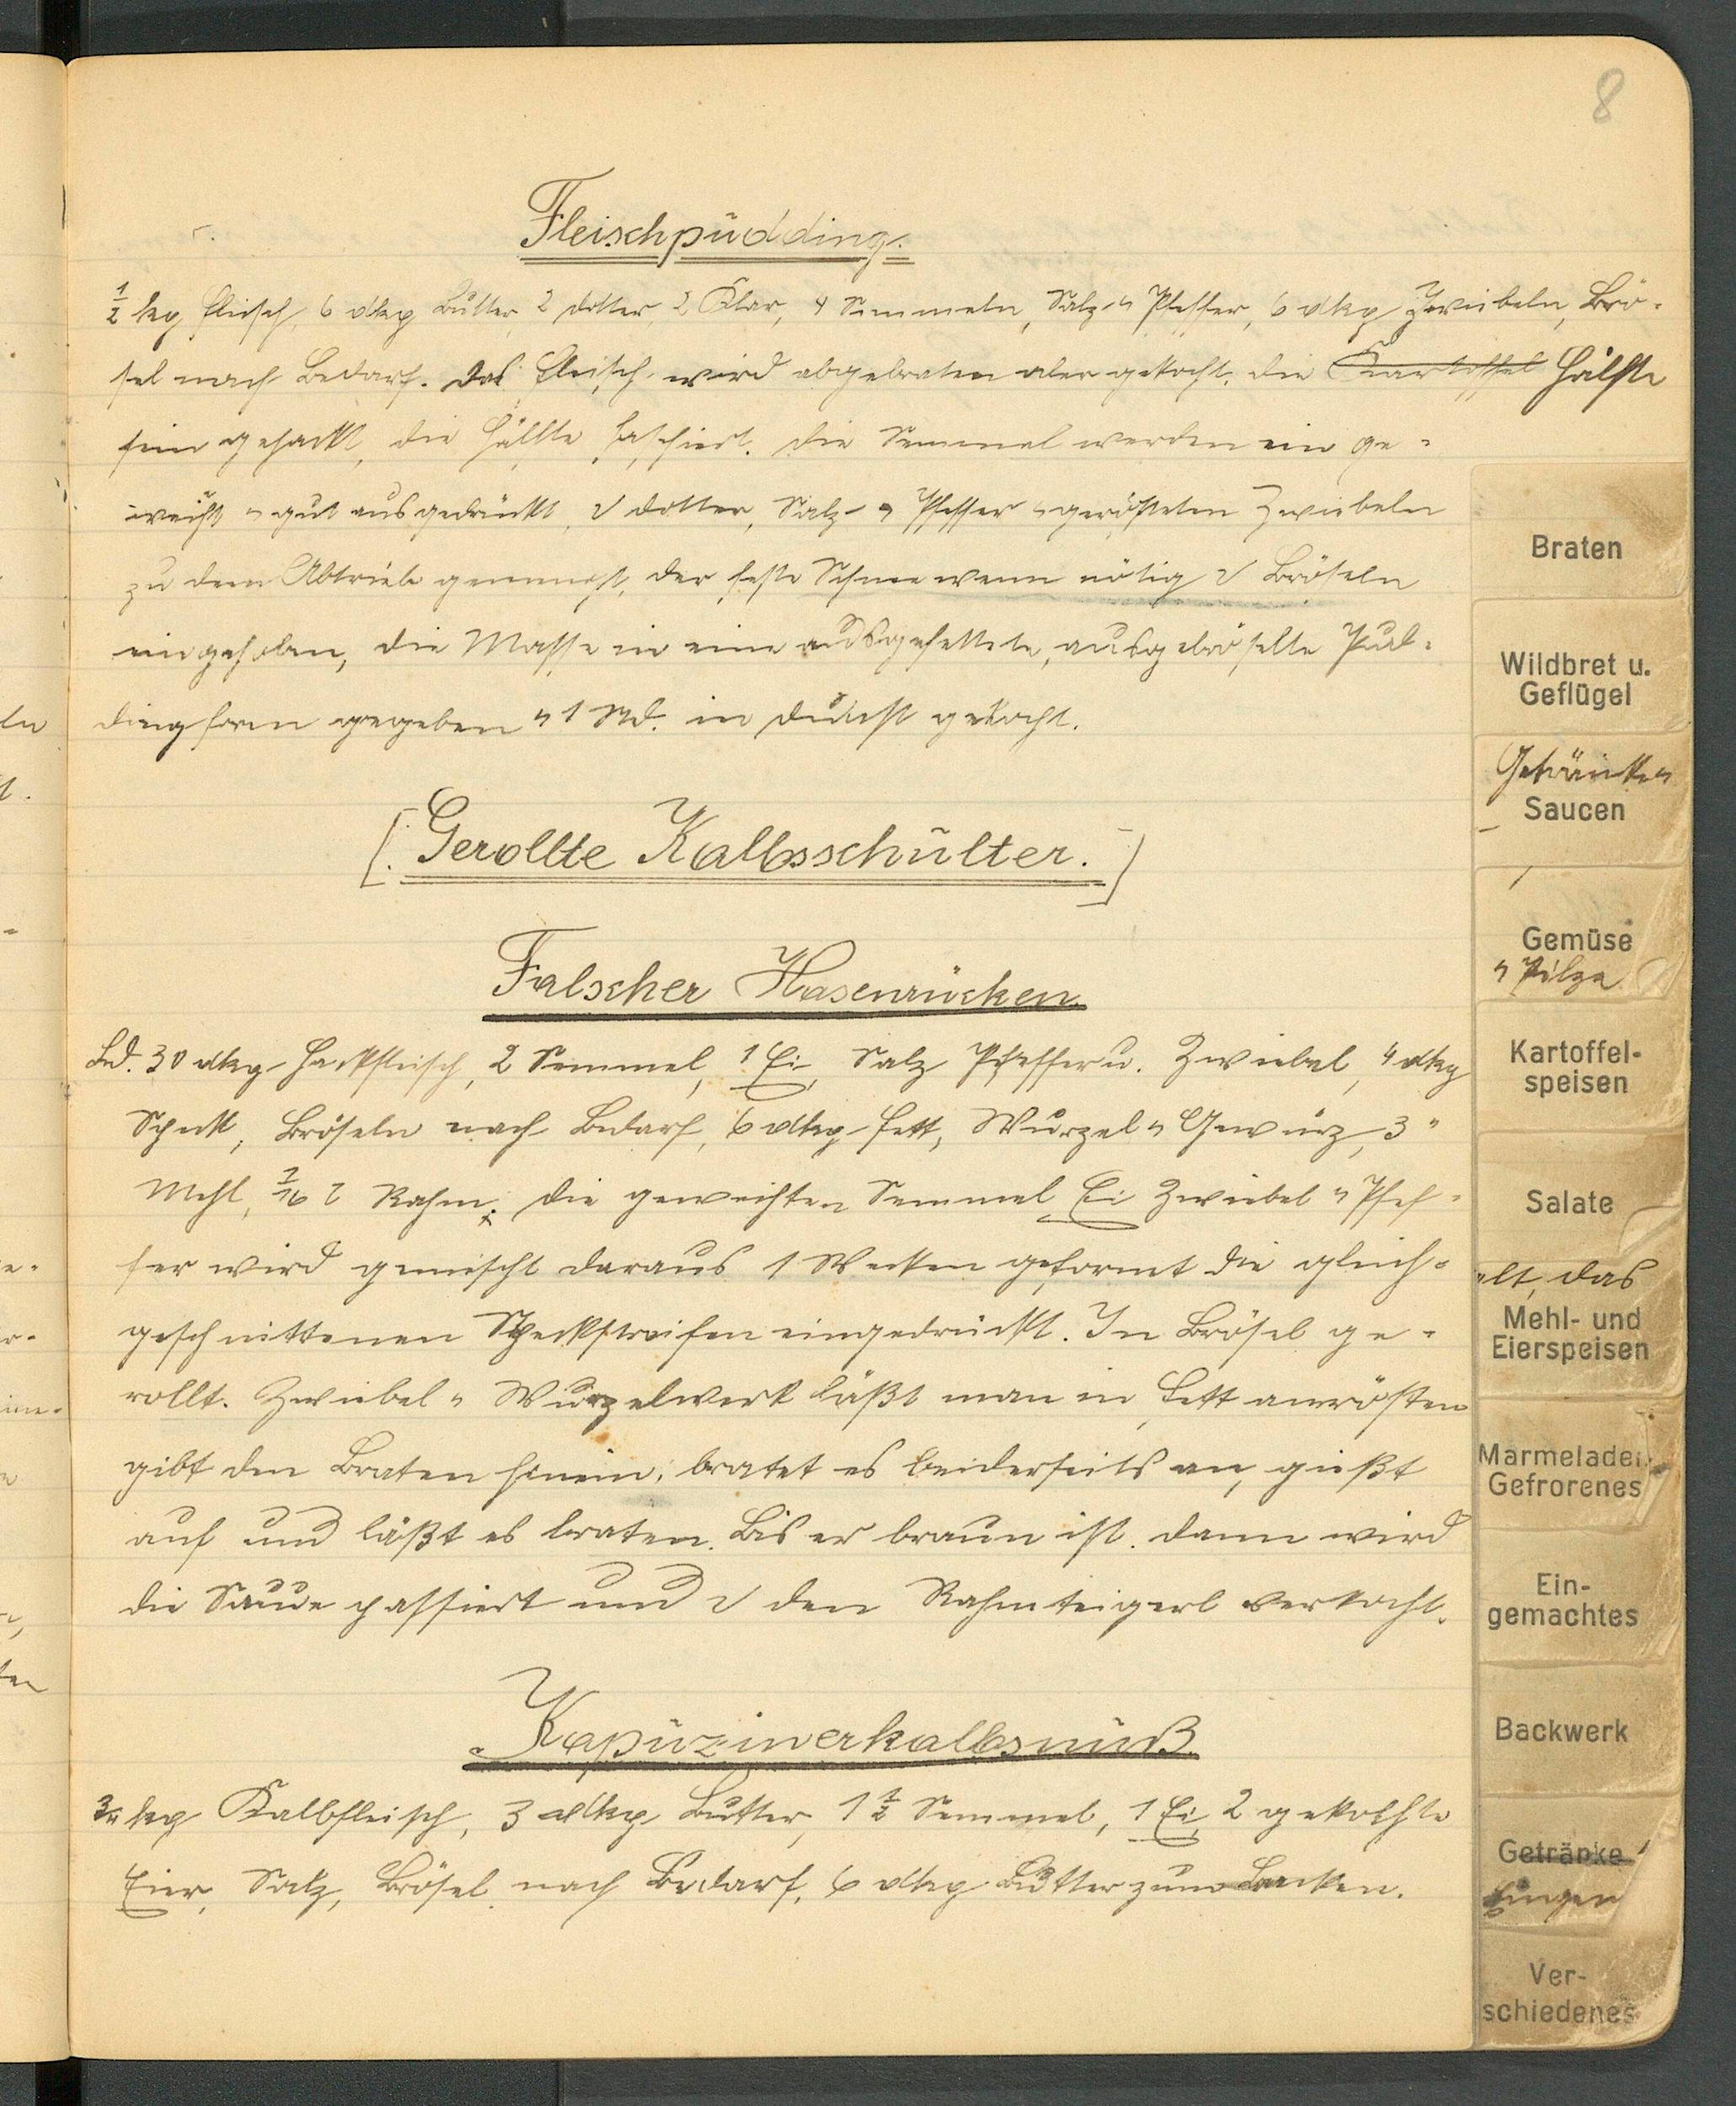 8
Fleischpudding.
1/2 kg Fleisch, 6 dkg Butter, 2 Dotter, 2 Klar, 4 Semmeln, Salz u Pfeffer, 6 dkg Zwiebeln, Brö-
sel nach Bedarf. Das Fleisch wird abgebraten oder gekocht. die Kartoffel Hälfte
fein gehackt, die Hälfte faschiert. die Semmel werden ein ge-
weicht u gut ausgedrückt, Dotter, Salz u Pfeffer u gerösteten Zwiebeln
zu dem Abtrieb gemengt, der feste Schnee wenn nötig Bröseln
eingehoben, die Masse in eine ausgefettete, ausgebröselte Pud-
dingform gegeben u 1 Std. in Dunst gekocht.
[Gerollte Kalbsschulter.]
Falscher Hasenrücken.
Bd. 30 dkg Hackfleisch, 2 Semmel, 1 Ei, Salz Pfeffer u. Zwiebel, 4 dkg
Speck, Bröseln nach Bedarf, 6 dkg Fett, Wurzel u Gewürz, 3 "
Mehl, 2/16 l Rahm. die geweichten Semmel Ei Zwiebel u Pfef-
fer wird gemischt daraus 1 Wecken geformt die gleich-
geschnittenen Speckstreifen eingedrückt. In Brösel ge-
rollt. Zwiebel u Wurzelwerk läßt man in Fett anrösten
gibt den Braten hinein, bratet es beiderseits an, gießt
auf und läßt es braten. Bis er braun ist. dann wird
die Sauce passiert und den Rahmteigerl verkocht.
Kapuzinerkalbsnuß.
3/4 kg Kalbfleisch, 3 dkg Butter, 1 1/2 Semmel, 1 Ei, 2 gekochte
Eier, Salz, Brösel nach Bedarf, 6 dkg Butter zum Backen.
Braten
Wildbret u.
Geflügel
Getränke u
Saucen
Gemüse
u Pilze
Kartoffel-
speisen
Salate
lt, das
Mehl- und
Eierspeisen
Marmeladen
Gefrorenes
Ein-
gemachtes
Backwerk
Getränke
Ver-
schiedenes